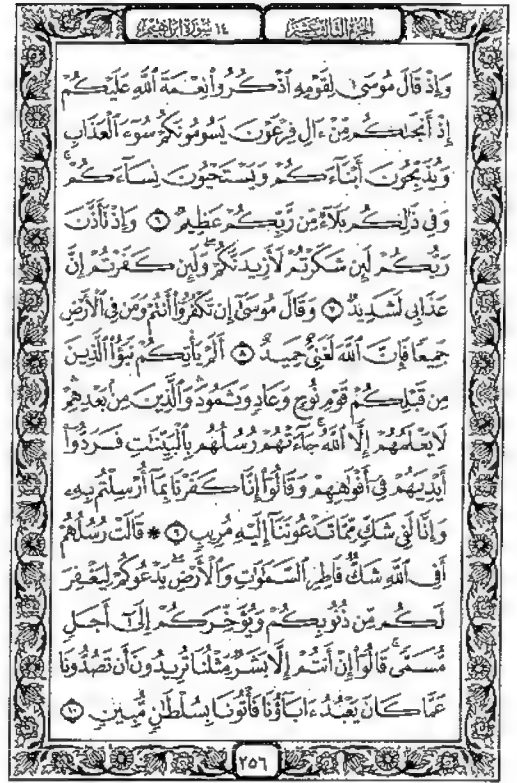 الجزء الثالث عشر
١٤ سورة إبراهيم
وَإِذْ قَالَ مُوسَىٰ لِقَوْمِهِ ٱذْكُرُوا۟ نِعْمَةَ ٱللَّهِ عَلَيْكُمْ
إِذْ أَنجَىٰكُم مِّنْ ءَالِ فِرْعَوْنَ يَسُومُونَكُمْ سُوٓءَ ٱلْعَذَابِ
وَيُذَبِّحُونَ أَبْنَآءَكُمْ وَيَسْتَحْيُونَ نِسَآءَكُمْ ۚ
وَفِى ذَٰلِكُم بَلَآءٌ مِّن رَّبِّكُمْ عَظِيمٌ ٦ وَإِذْ تَأَذَّنَ
رَبُّكُمْ لَئِن شَكَرْتُمْ لَأَزِيدَنَّكُمْ ۖ وَلَئِن كَفَرْتُمْ إِنَّ
عَذَابِى لَشَدِيدٌ ٧ وَقَالَ مُوسَىٰٓ إِن تَكْفُرُوٓا۟ أَنتُمْ وَمَن فِى ٱلْأَرْضِ
جَمِيعًا فَإِنَّ ٱللَّهَ لَغَنِىٌّ حَمِيدٌ ٨ أَلَمْ يَأْتِكُمْ نَبَؤُا۟ ٱلَّذِينَ
مِن قَبْلِكُمْ قَوْمِ نُوحٍ وَعَادٍ وَثَمُودَ ۛ وَٱلَّذِينَ مِنۢ بَعْدِهِمْ ۛ
لَا يَعْلَمُهُمْ إِلَّا ٱللَّهُ ۚ جَآءَتْهُمْ رُسُلُهُم بِٱلْبَيِّنَٰتِ فَرَدُّوٓا۟
أَيْدِيَهُمْ فِىٓ أَفْوَٰهِهِمْ وَقَالُوٓا۟ إِنَّا كَفَرْنَا بِمَآ أُرْسِلْتُم بِهِۦ
وَإِنَّا لَفِى شَكٍّ مِّمَّا تَدْعُونَنَآ إِلَيْهِ مُرِيبٍ ٩ * قَالَتْ رُسُلُهُمْ
أَفِى ٱللَّهِ شَكٌّ فَاطِرِ ٱلسَّمَٰوَٰتِ وَٱلْأَرْضِ ۖ يَدْعُوكُمْ لِيَغْفِرَ
لَكُم مِّن ذُنُوبِكُمْ وَيُؤَخِّرَكُمْ إِلَىٰٓ أَجَلٍ
مُّسَمًّى ۚ قَالُوٓا۟ إِنْ أَنتُمْ إِلَّا بَشَرٌ مِّثْلُنَا تُرِيدُونَ أَن تَصُدُّونَا
عَمَّا كَانَ يَعْبُدُ ءَابَآؤُنَا فَأْتُونَا بِسُلْطَٰنٍ مُّبِينٍ ١٠
٢٥٦